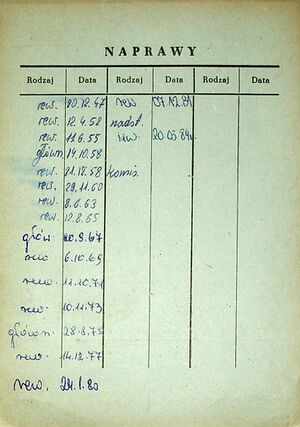 NAPRAWY
Rodzaj Data Rodzaj Data Rodzaj Data
rew. 20.12.47 rew 07.12.81
rew. 12.4.52 nadzt.
rew. 11.6.55 rew. 20.03.84
główn. 14.10.58
rew. 21.12.58 komis.
rew. 29.11.60
rew. 8.6.63
rew. 12.8.65
głów. 20.9.67
rew 6.10.69
rew. 11.10.71
rew. 10.11.73
główn. 28.8.75
rew. 14.12.77
rew. 24.1.80